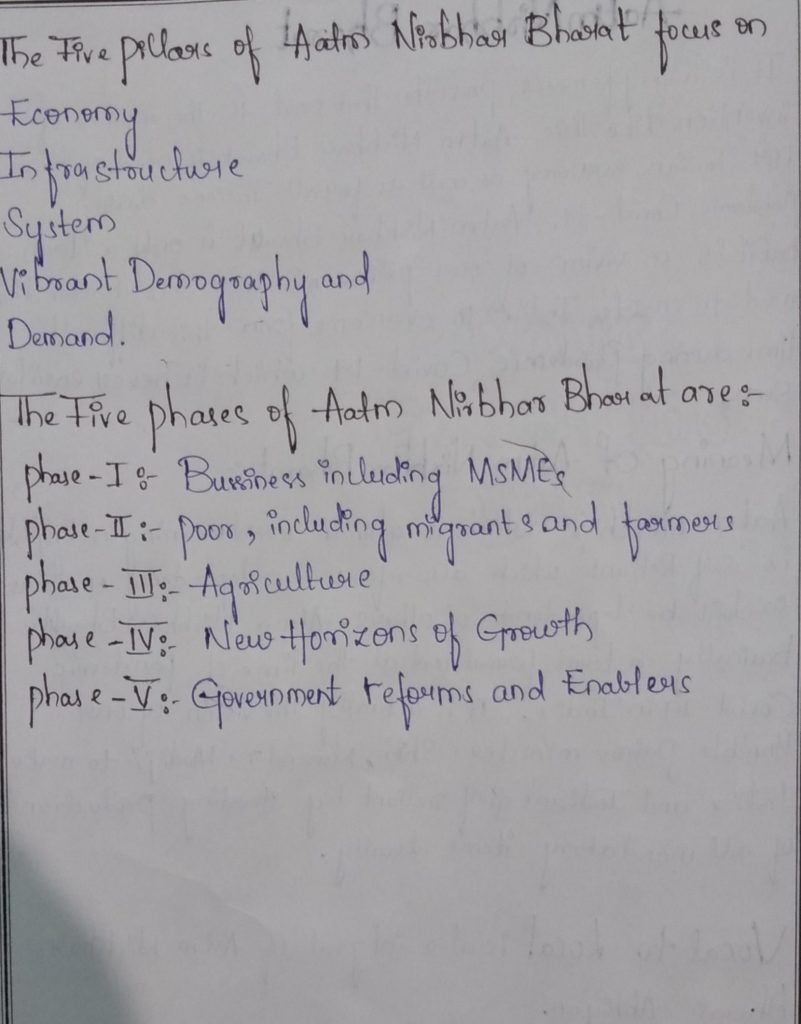 The Five pillars of Aatm Nirbhar Bharat focus on
Economy
Infrastructure
System
Vibrant Demography and
Demand.
The Five phases of Aatm Nirbhar Bharat are :-
phase - I :- Bussiness including MSMEs
phase - II :- Poor, including migrants and farmers
phase - III :- Agriculture
phase - IV :- New Horizons of Growth
phase - V :- Government reforms and Enablers